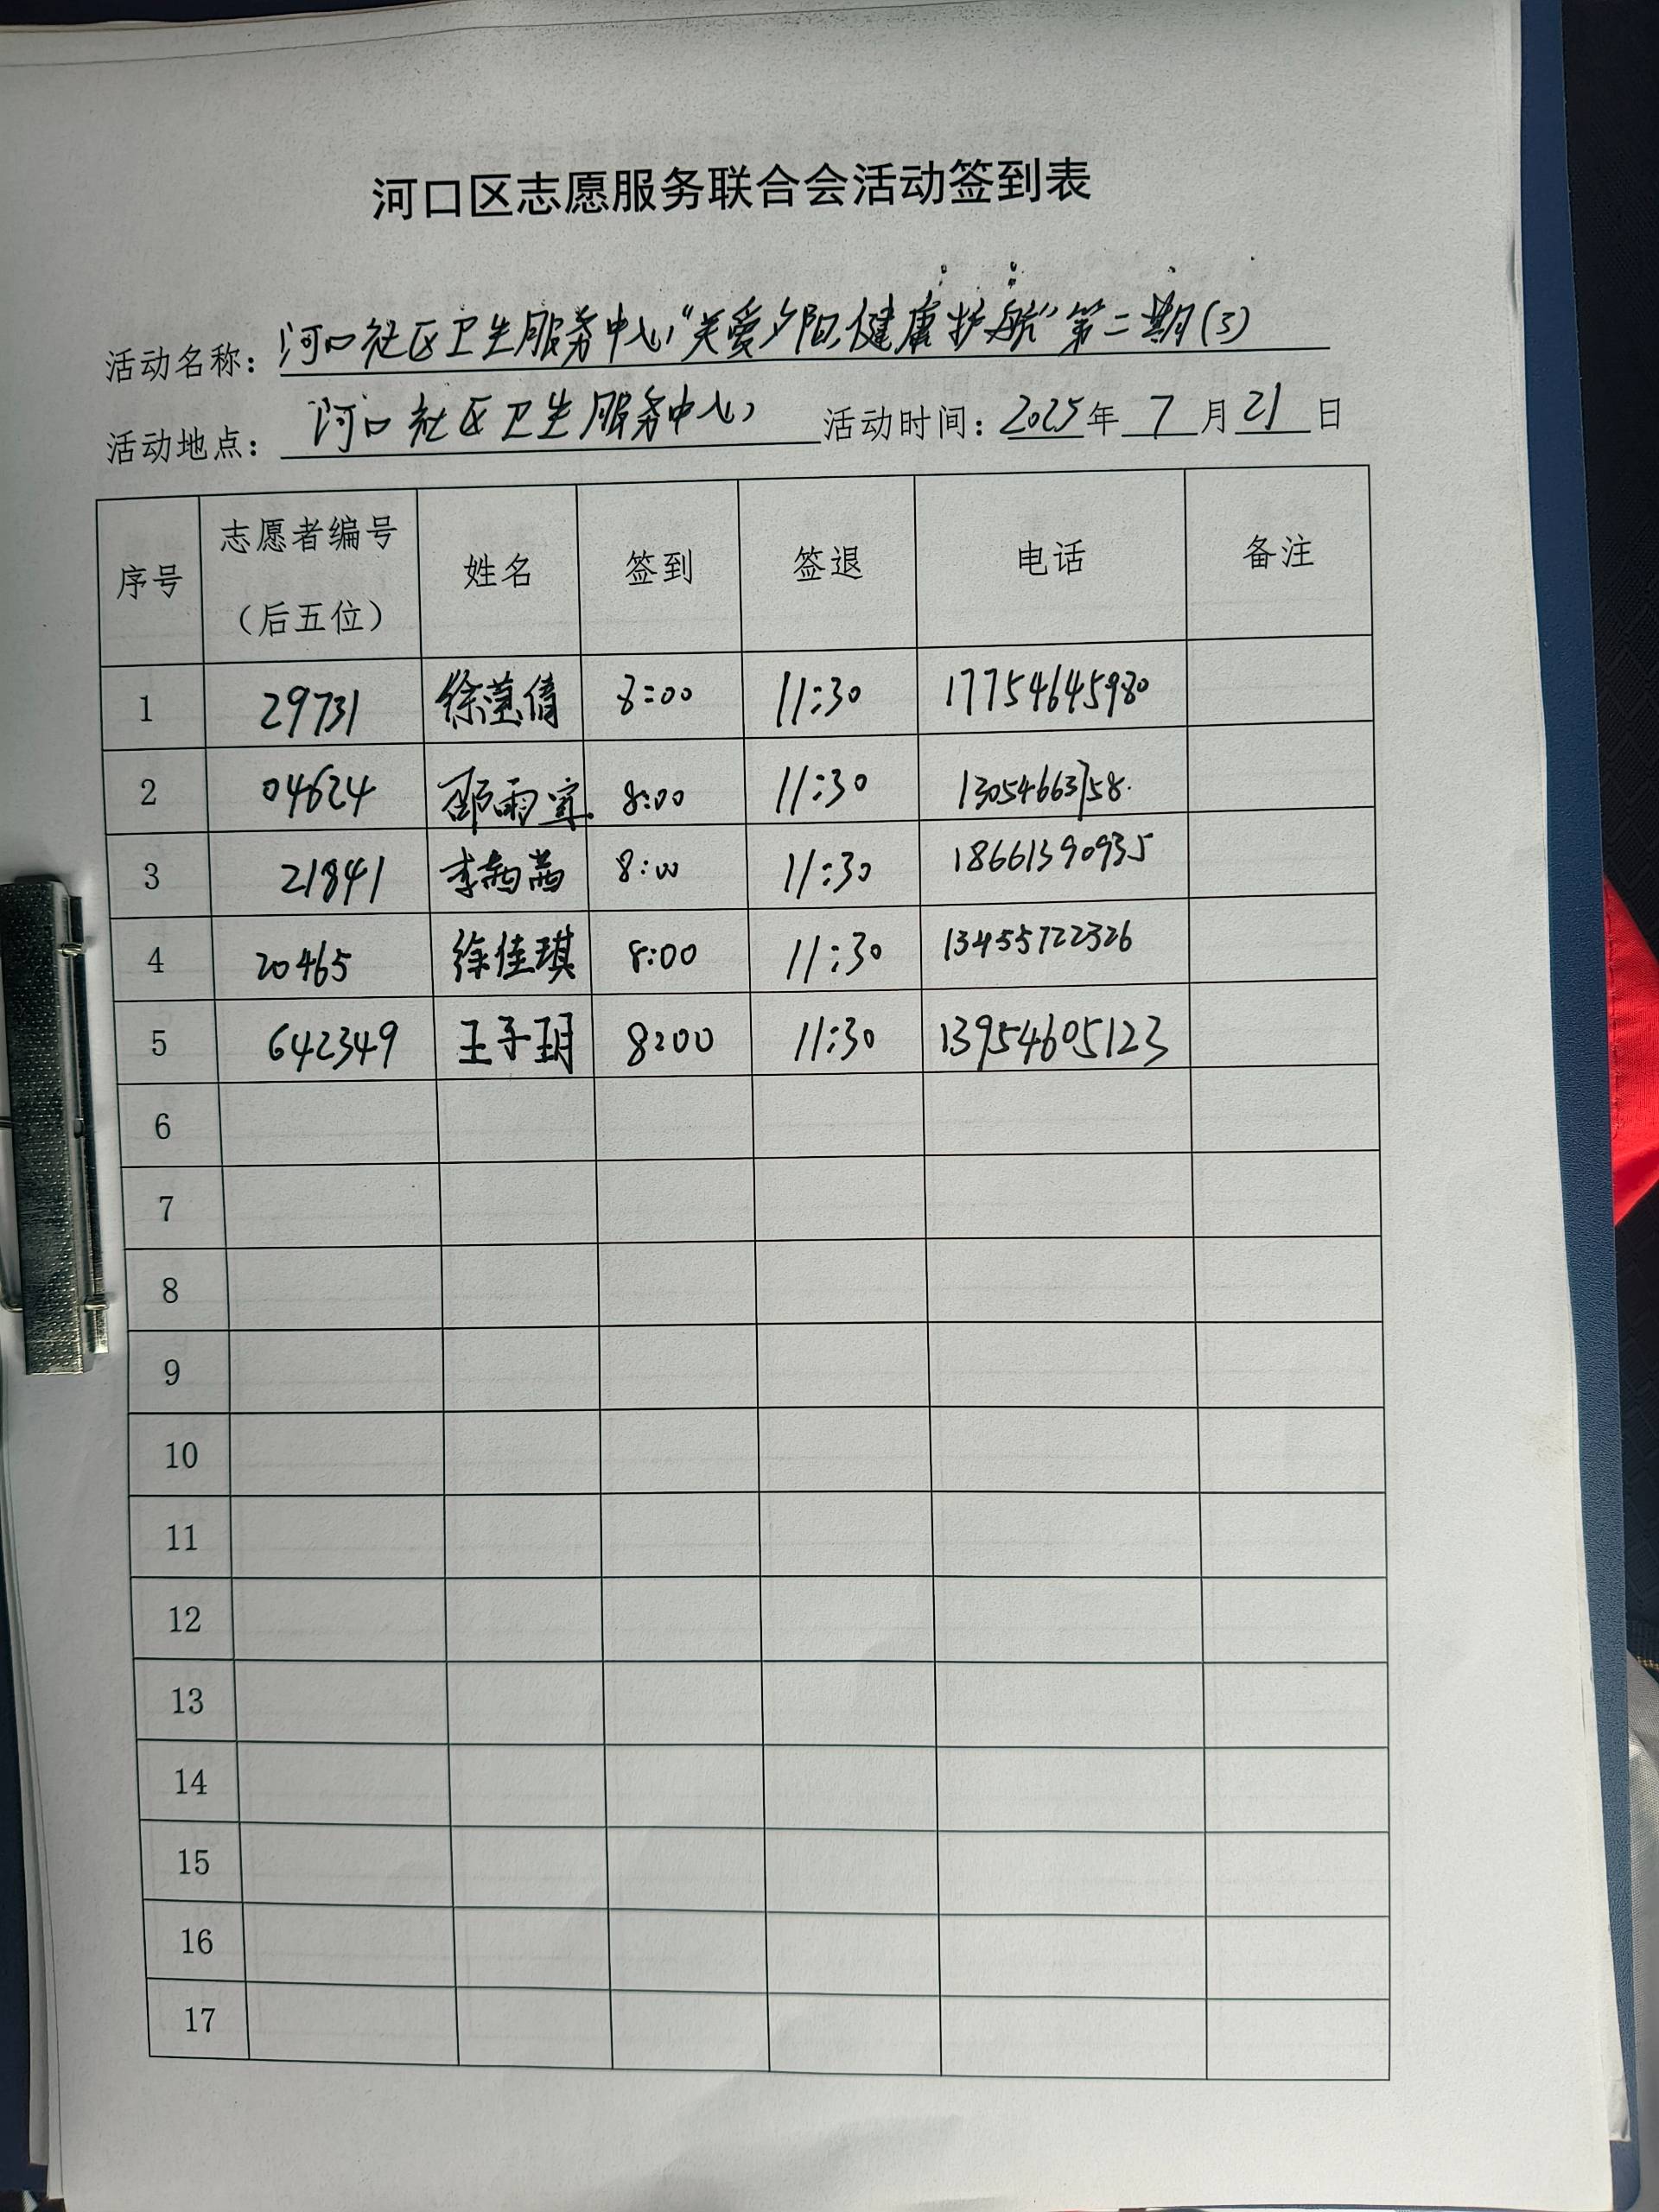 河口区志愿服务联合会活动签到表
活动名称：河口社区卫生服务中心“关爱夕阳，健康护航”第二期(3)
活动地点：河口社区卫生服务中心 活动时间：2025年7月21日
序号 志愿者编号（后五位） 姓名 签到 签退 电话 备注
1 29731 徐莲倩 8:00 11:30 17754645980
2 04624 邵雨宣 8:00 11:30 13054663758
3 21841 李茜茜 8:00 11:30 18661390935
4 20465 徐佳琪 8:00 11:30 13455722326
5 642349 王子玥 8:00 11:30 13954605123
6
7
8
9
10
11
12
13
14
15
16
17